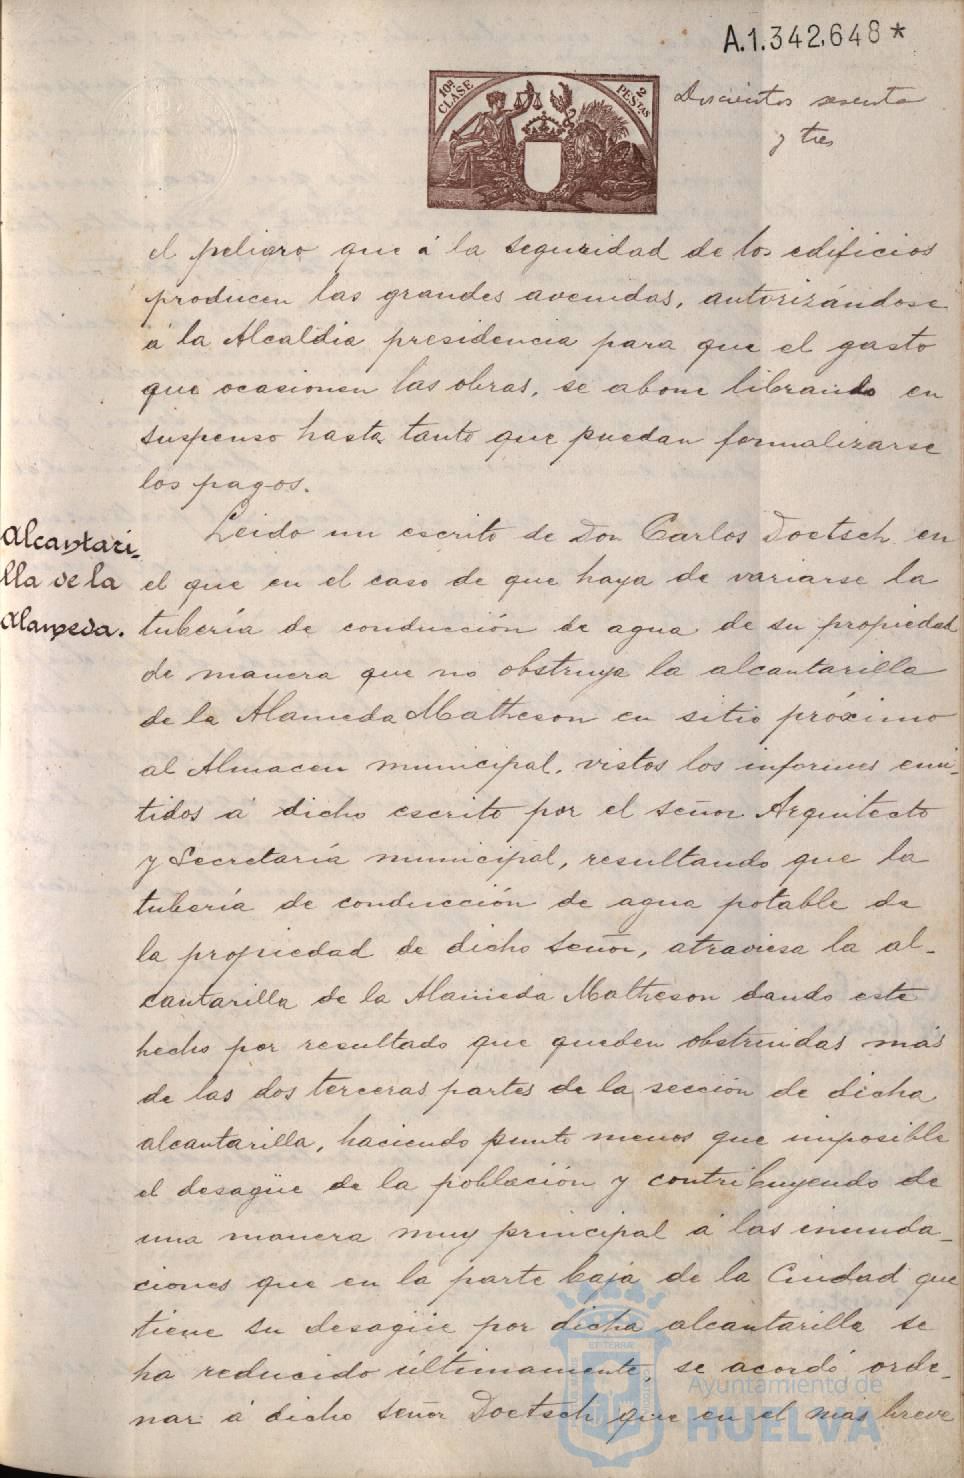 A.1.342,648*
10ª CLASE
2 PESTAS
Doscientos sesenta
y tres
el peligro que á la seguridad de los edificios
producen las grandes avenidas, autorizándose
á la Alcaldia presidencia para que el gasto
que ocasionen las obras, se abone librando en
suspenso hasta tanto que puedan formalizarse
los pagos.
Alcantari-
lla de la
Alameda.
Leido un escrito de Don Carlos Doetsch en
el que en el caso de que haya de variarse la
tubería de conducción de agua de su propiedad
de manera que no obstruya la alcantarilla
de la Alameda Matheson en sitio próximo
al Almacen municipal, vistos los informes emi-
tidos á dicho escrito por el señor Arquitecto
y Secretaría municipal, resultando que la
tubería de conducción de agua potable de
la propiedad de dicho señor, atraviesa la al-
cantarilla de la Alameda Matheson dando este
hecho por resultado que queden obstruidas más
de las dos terceras partes de la sección de dicha
alcantarilla, haciendo punto menos que imposible
el desagüe de la población y contribuyendo de
una manera muy principal á las inunda-
ciones que en la parte baja de la Ciudad que
tiene su desagüe por dicha alcantarilla se
ha reducido últimamente, se acordó orde-
nar á dicho señor Doetsch que en el mas breve
Ayuntamiento de
HUELVA